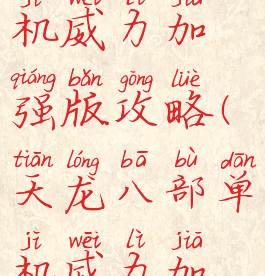 jī wēi lì jiā
机威力加
qiáng bǎn gōng lüè
强版攻略(
tiān lóng bā bù dān
天龙八部单
jī wēi lì jiā
机威力加